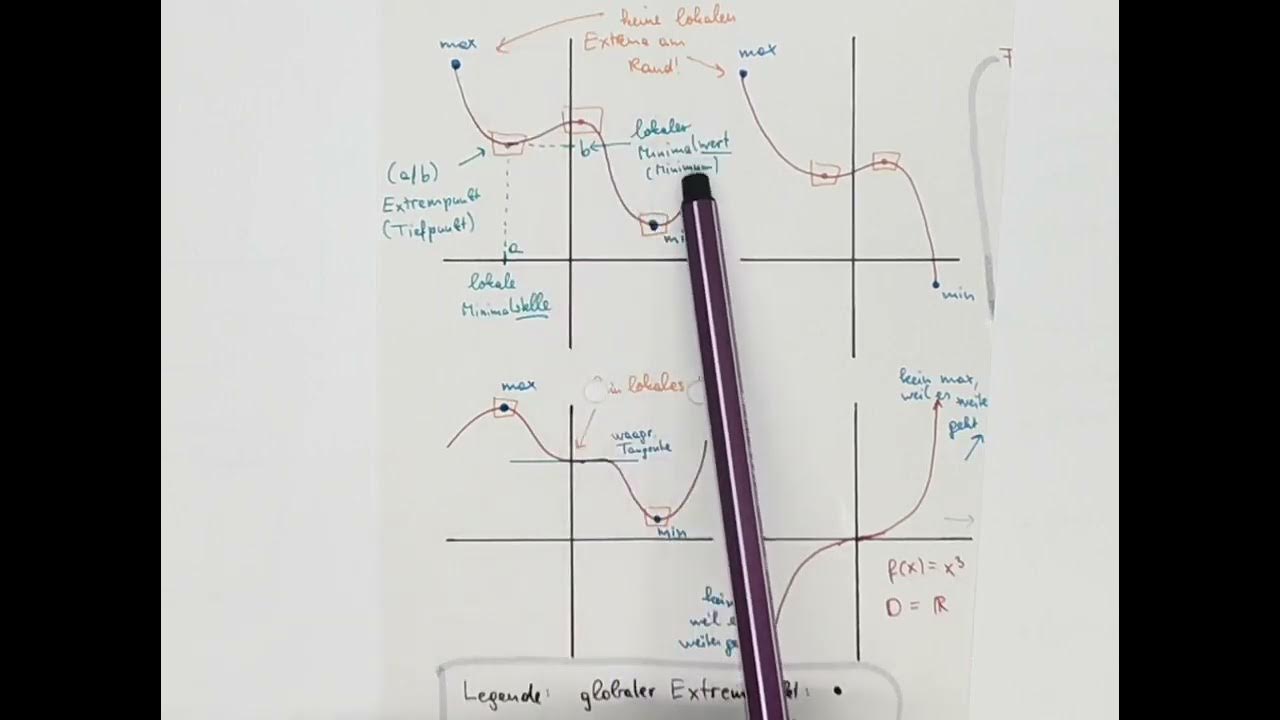 keine lokalen
Extrema am
Rand!
max
max
lokaler
Minimalwert
(Minimum)
b
(a/b)
Extrempunkt
(Tiefpunkt)
a
min
lokale
Minimalstelle
max
lokales
waagr.
Tangente
min
kein max,
weil es weiter
geht
f(x) = x³
D = ℝ
weil
Legende: globaler